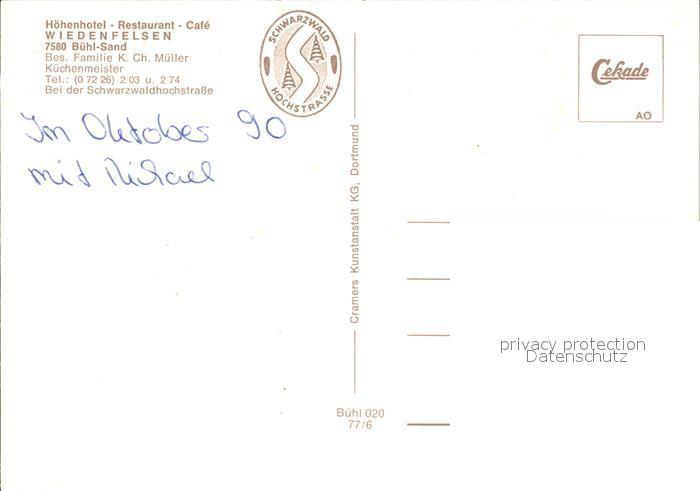 Höhenhotel - Restaurant - Café
WIEDENFELSEN
7580 Bühl-Sand
Bes. Familie K. Ch. Müller
Küchenmeister
Tel.: (0 72 26) 2 03 u. 2 74
Bei der Schwarzwaldhochstraße
SCHWARZWALD
HOCHSTRASSE
Cekade
AO
Im Oktober 90
mit Michael
Cramers Kunstanstalt KG, Dortmund
privacy protection
Datenschutz
Bühl 020
77/6